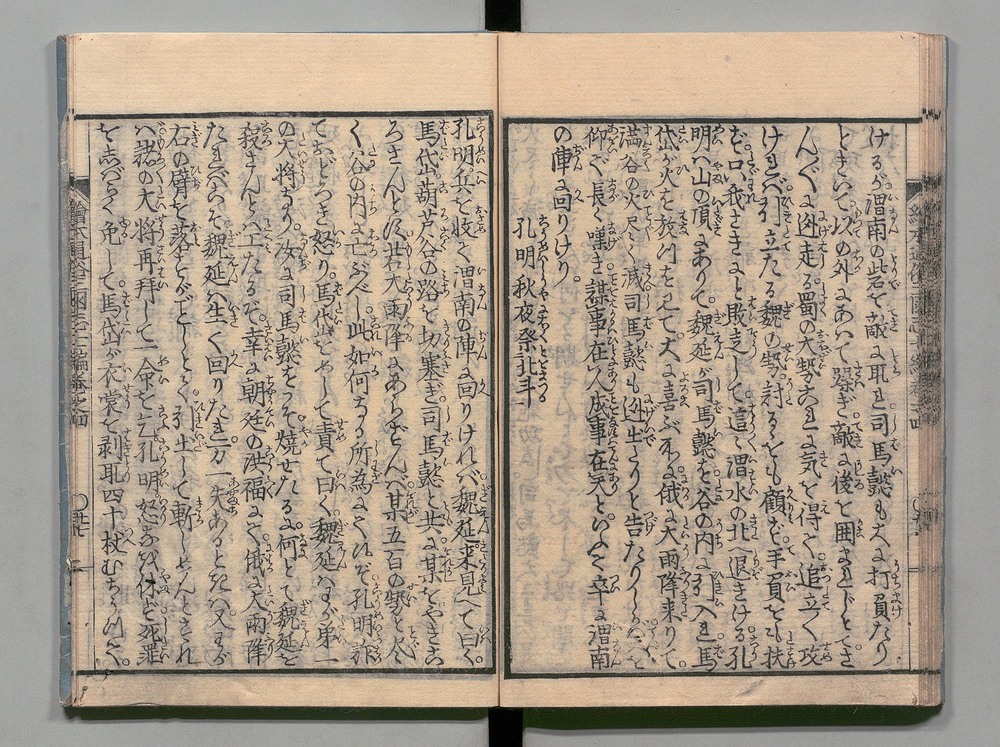 けるが渭南の砦を敵に取れ司馬懿も大に打負たり
ときいて以の外にあわて躁ぎ敵に後を囲まれじとてさ
んざんに迯走る蜀の大勢これに気を得て追立て攻
ければ引立たる魏の勢討るをも顧ず手負をも扶
ず我さきにと敗走して這渭水の北へ退きける孔
明ハ山の頂にありて魏延が司馬懿を谷の内に引入れ馬
岱が火を放けるを見て大に喜ぶ所に俄に大雨降来りて
満谷の火尽く滅司馬懿も迯出たりと告たりしかば天を
仰ぎ長く嘆き謀事在人成事在天といひて卒に渭南
の陣に回りけり。
孔明秋夜祭北斗
孔明兵を収て渭南の陣に回りければ魏延来見へて曰く
馬岱葫芦谷の路を切塞ぎ司馬懿と共に某をやきこ
ろさんとす若大雨降にあらずんば某五百の勢と尽
く谷の内に亡ぶべし此如何なる所為にて候ぞ孔明詐
ておどろき怒り馬岱をよびて責て曰く魏延ハわが第一
の大将なり汝に司馬懿をこそ焼せたるに何とて魏延を
殺さんとハ工たるぞ幸に朝廷の洪福にて俄に大雨降
たればこそ魏延ハ生て回りたれ万一失あるときハ又わが
右の臂を落とすべしとて引出して斬しめんとされ
バ諸の大将再拝して一命を乞孔明怒なほ休ど死罪
をしばらく免して馬岱が衣裳を剥取四十杖むちうつて
繪本通俗三國志七編巻之四